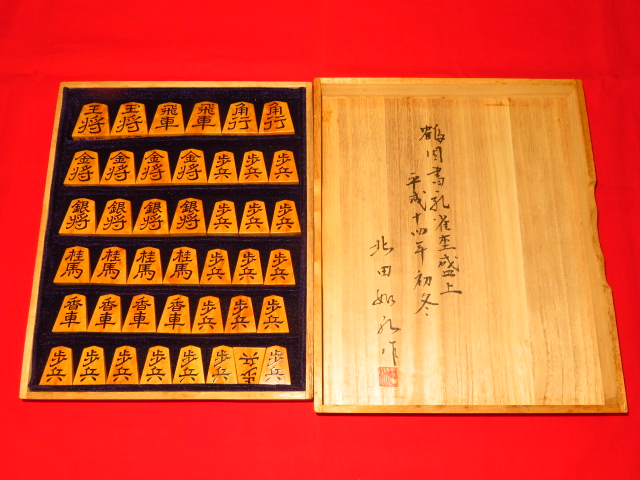 王将 玉将 飛車 飛車 角行 角行
金将 金将 金将 金将 歩兵 歩兵 歩兵
銀将 銀将 銀将 銀将 歩兵 歩兵 歩兵
桂馬 桂馬 桂馬 桂馬 歩兵 歩兵 歩兵
香車 香車 香車 香車 歩兵 歩兵 歩兵
歩兵 歩兵 歩兵 歩兵 歩兵 歩兵 歩兵 歩兵
書孔雀杢盛上
平成十四年初冬
北田如水作